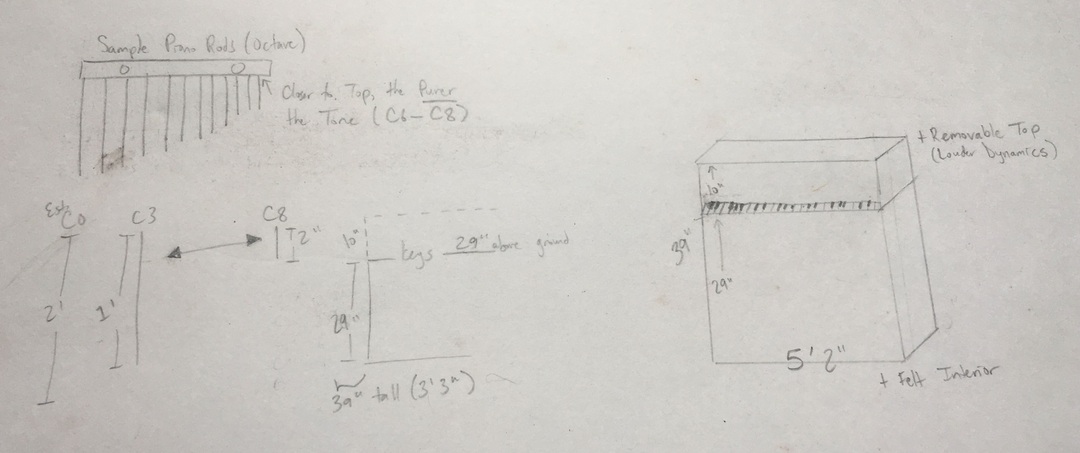 Sample Piano Rods (Octave)
Closer to Top, the Purer
the Tone (C6-C8)
Est.
C0
C3
C8
2"
2'
1'
10"
keys 29" above ground
29"
39" tall (3'3")
+ Removable Top
(Louder Dynamics)
10"
39"
29"
5'2"
+ Felt Interior